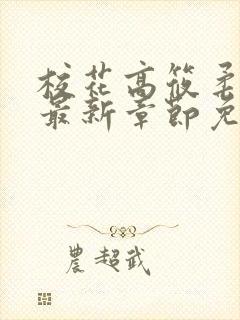 校花高筱柔
最新章節免
農超武